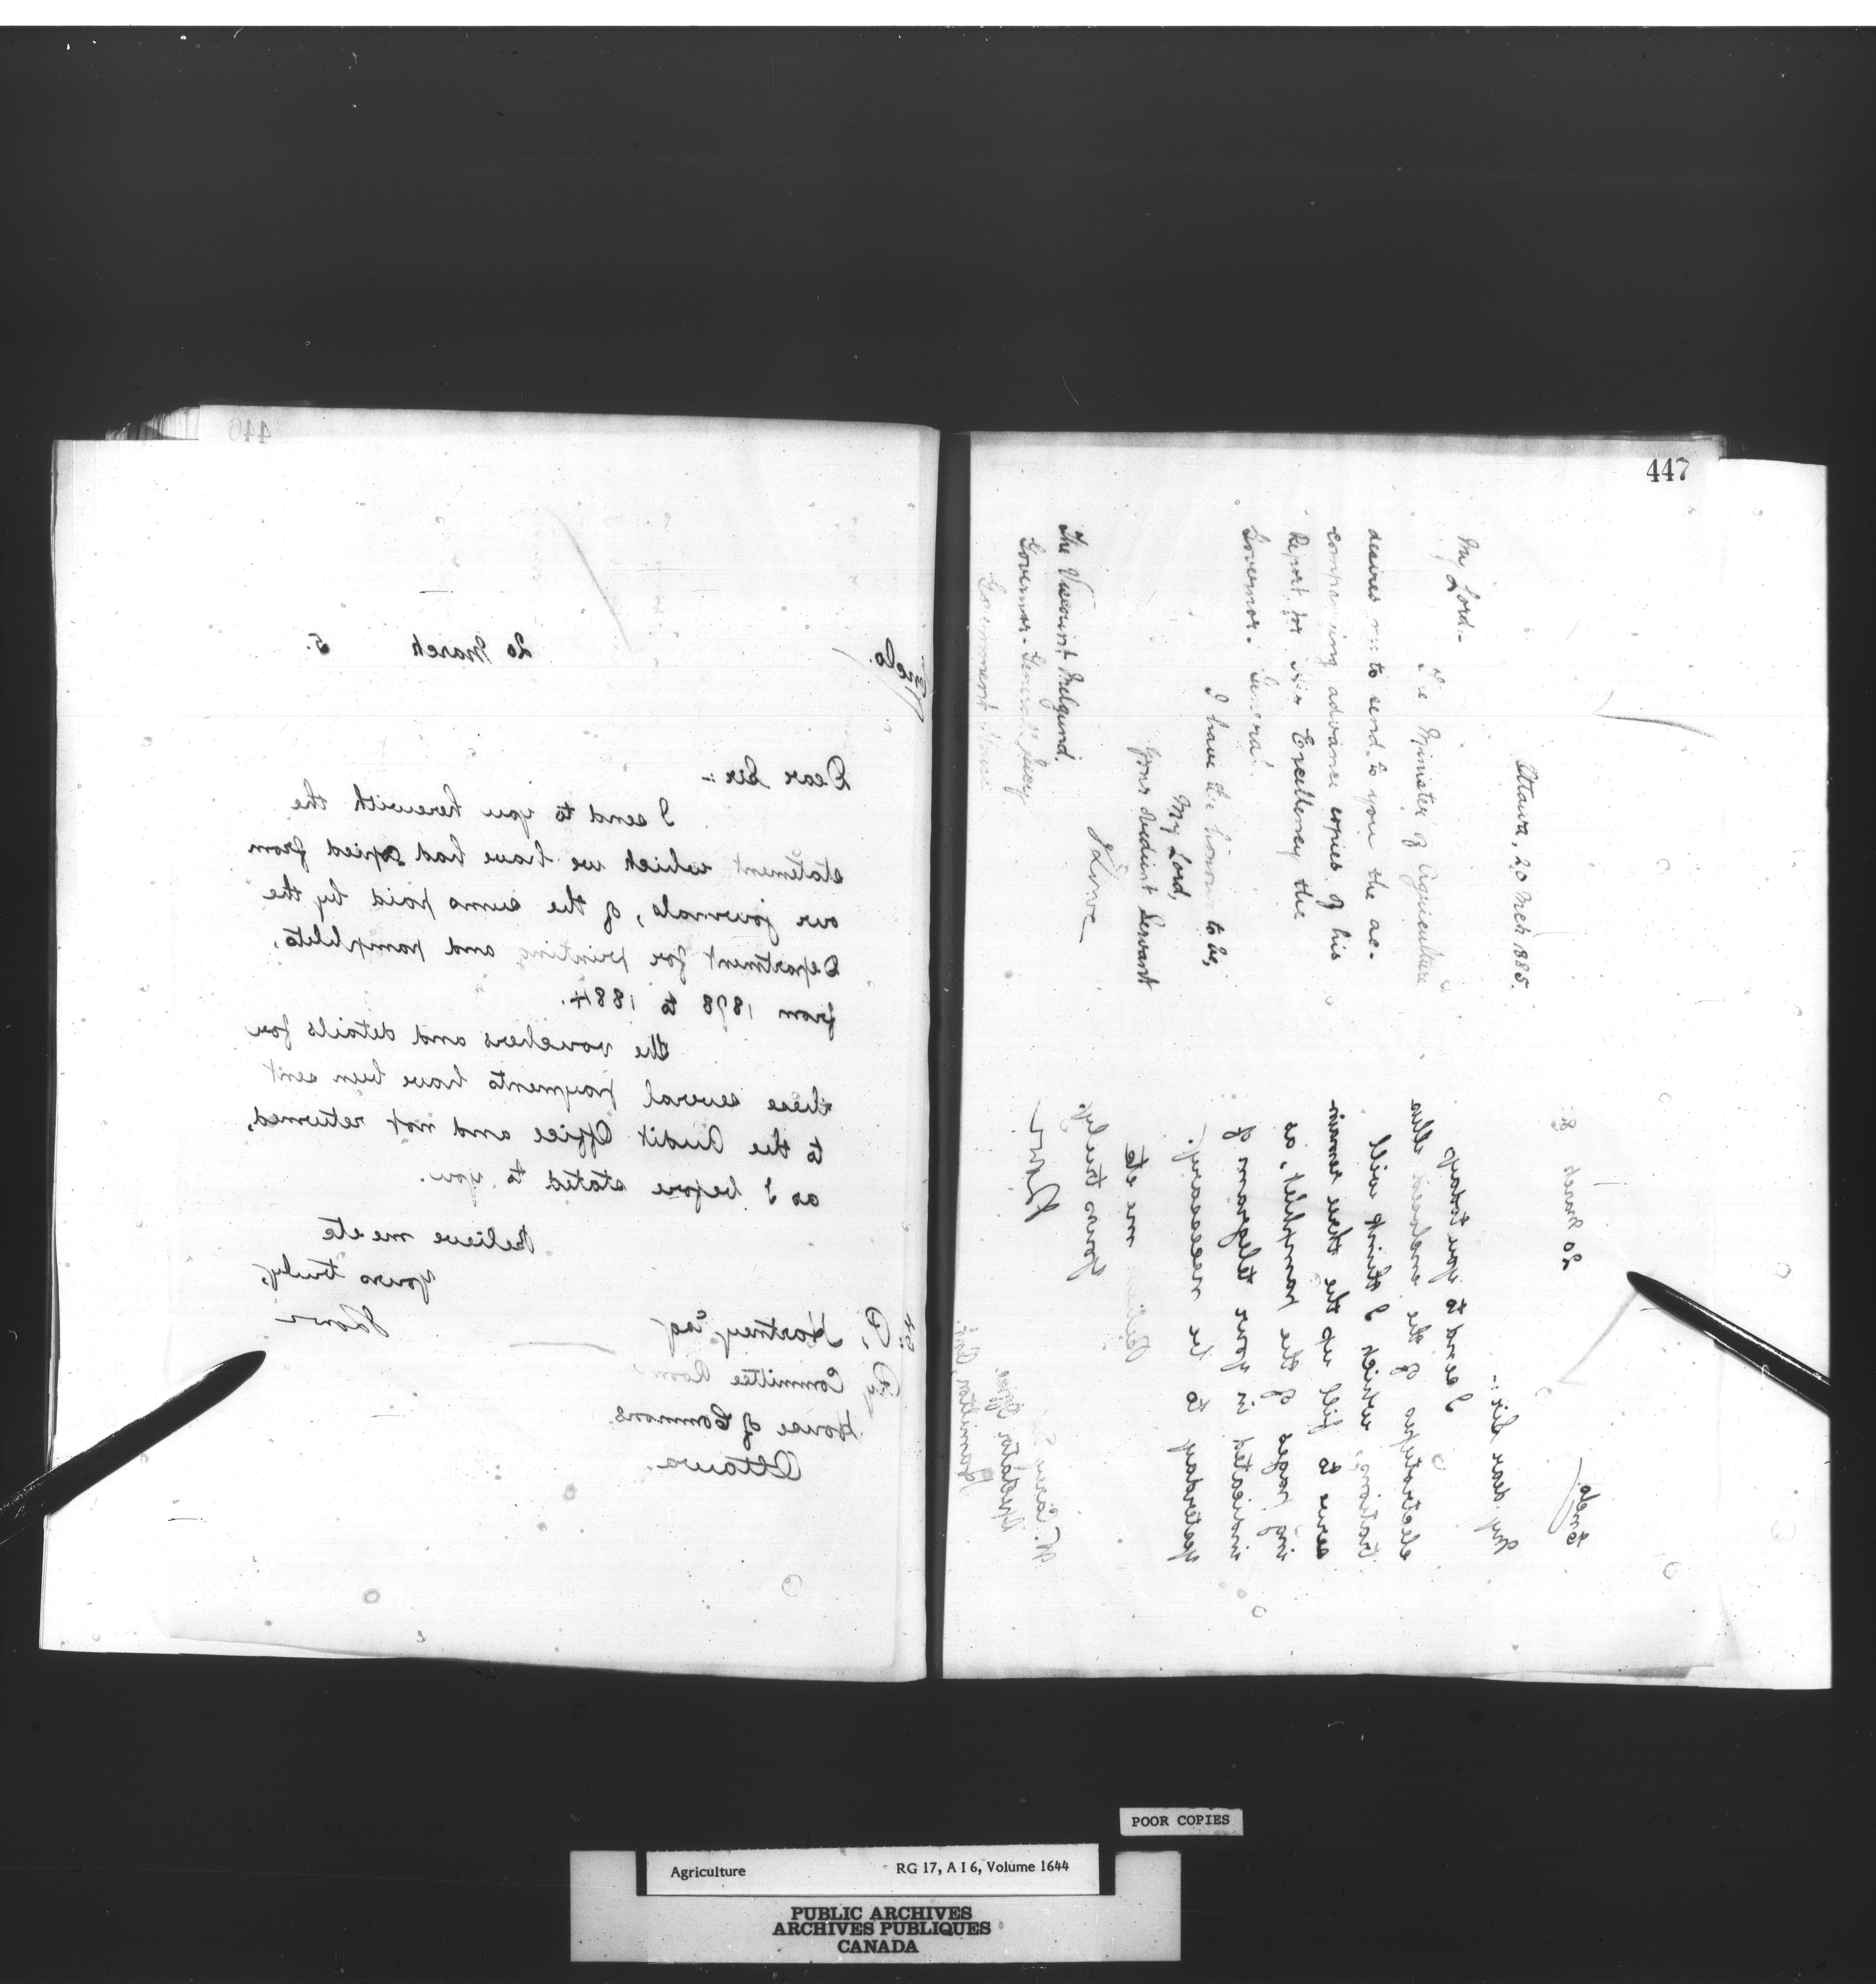 446
Enclo.
20 March 5.
Dear Sir:-
I send to you herewith the
statement which we have had copied from
our journals, of the sums paid by the
Department for printing and pamphlets,
from 1878 to 1884.
The vouchers and details for
these several payments have been sent
to the Audit Office and not returned,
as I before stated to you.
Believe me etc
Yours truly,
J Lowe
Hartney Esq
Committee Room
House of Commons
Ottawa.
447
Ottawa, 20 Mch 1885.
My Lord-
The Minister of Agriculture
desires me to send to you the ac-
companying advance copies of his
Report for His Excellency the
Governor-General.
I have the honour to be,
My Lord,
Your obedient Servant
J Lowe
The Viscount Melgund.
Governor-General's Secy
Government House
Enclo.
20 March
My dear Sir:-
I send to you today
electrotypes of the enclosed illus
trations, which I think will
serve to fill up the three remain-
ing pages of the pamphlet, as
indicated in your telegram of
yesterday to be necessary.
Believe me etc
Yours truly
J Lowe
Spectator Office
Hamilton, Ont.
POOR COPIES
Agriculture RG 17, A I 6, Volume 1644
PUBLIC ARCHIVES
ARCHIVES PUBLIQUES
CANADA